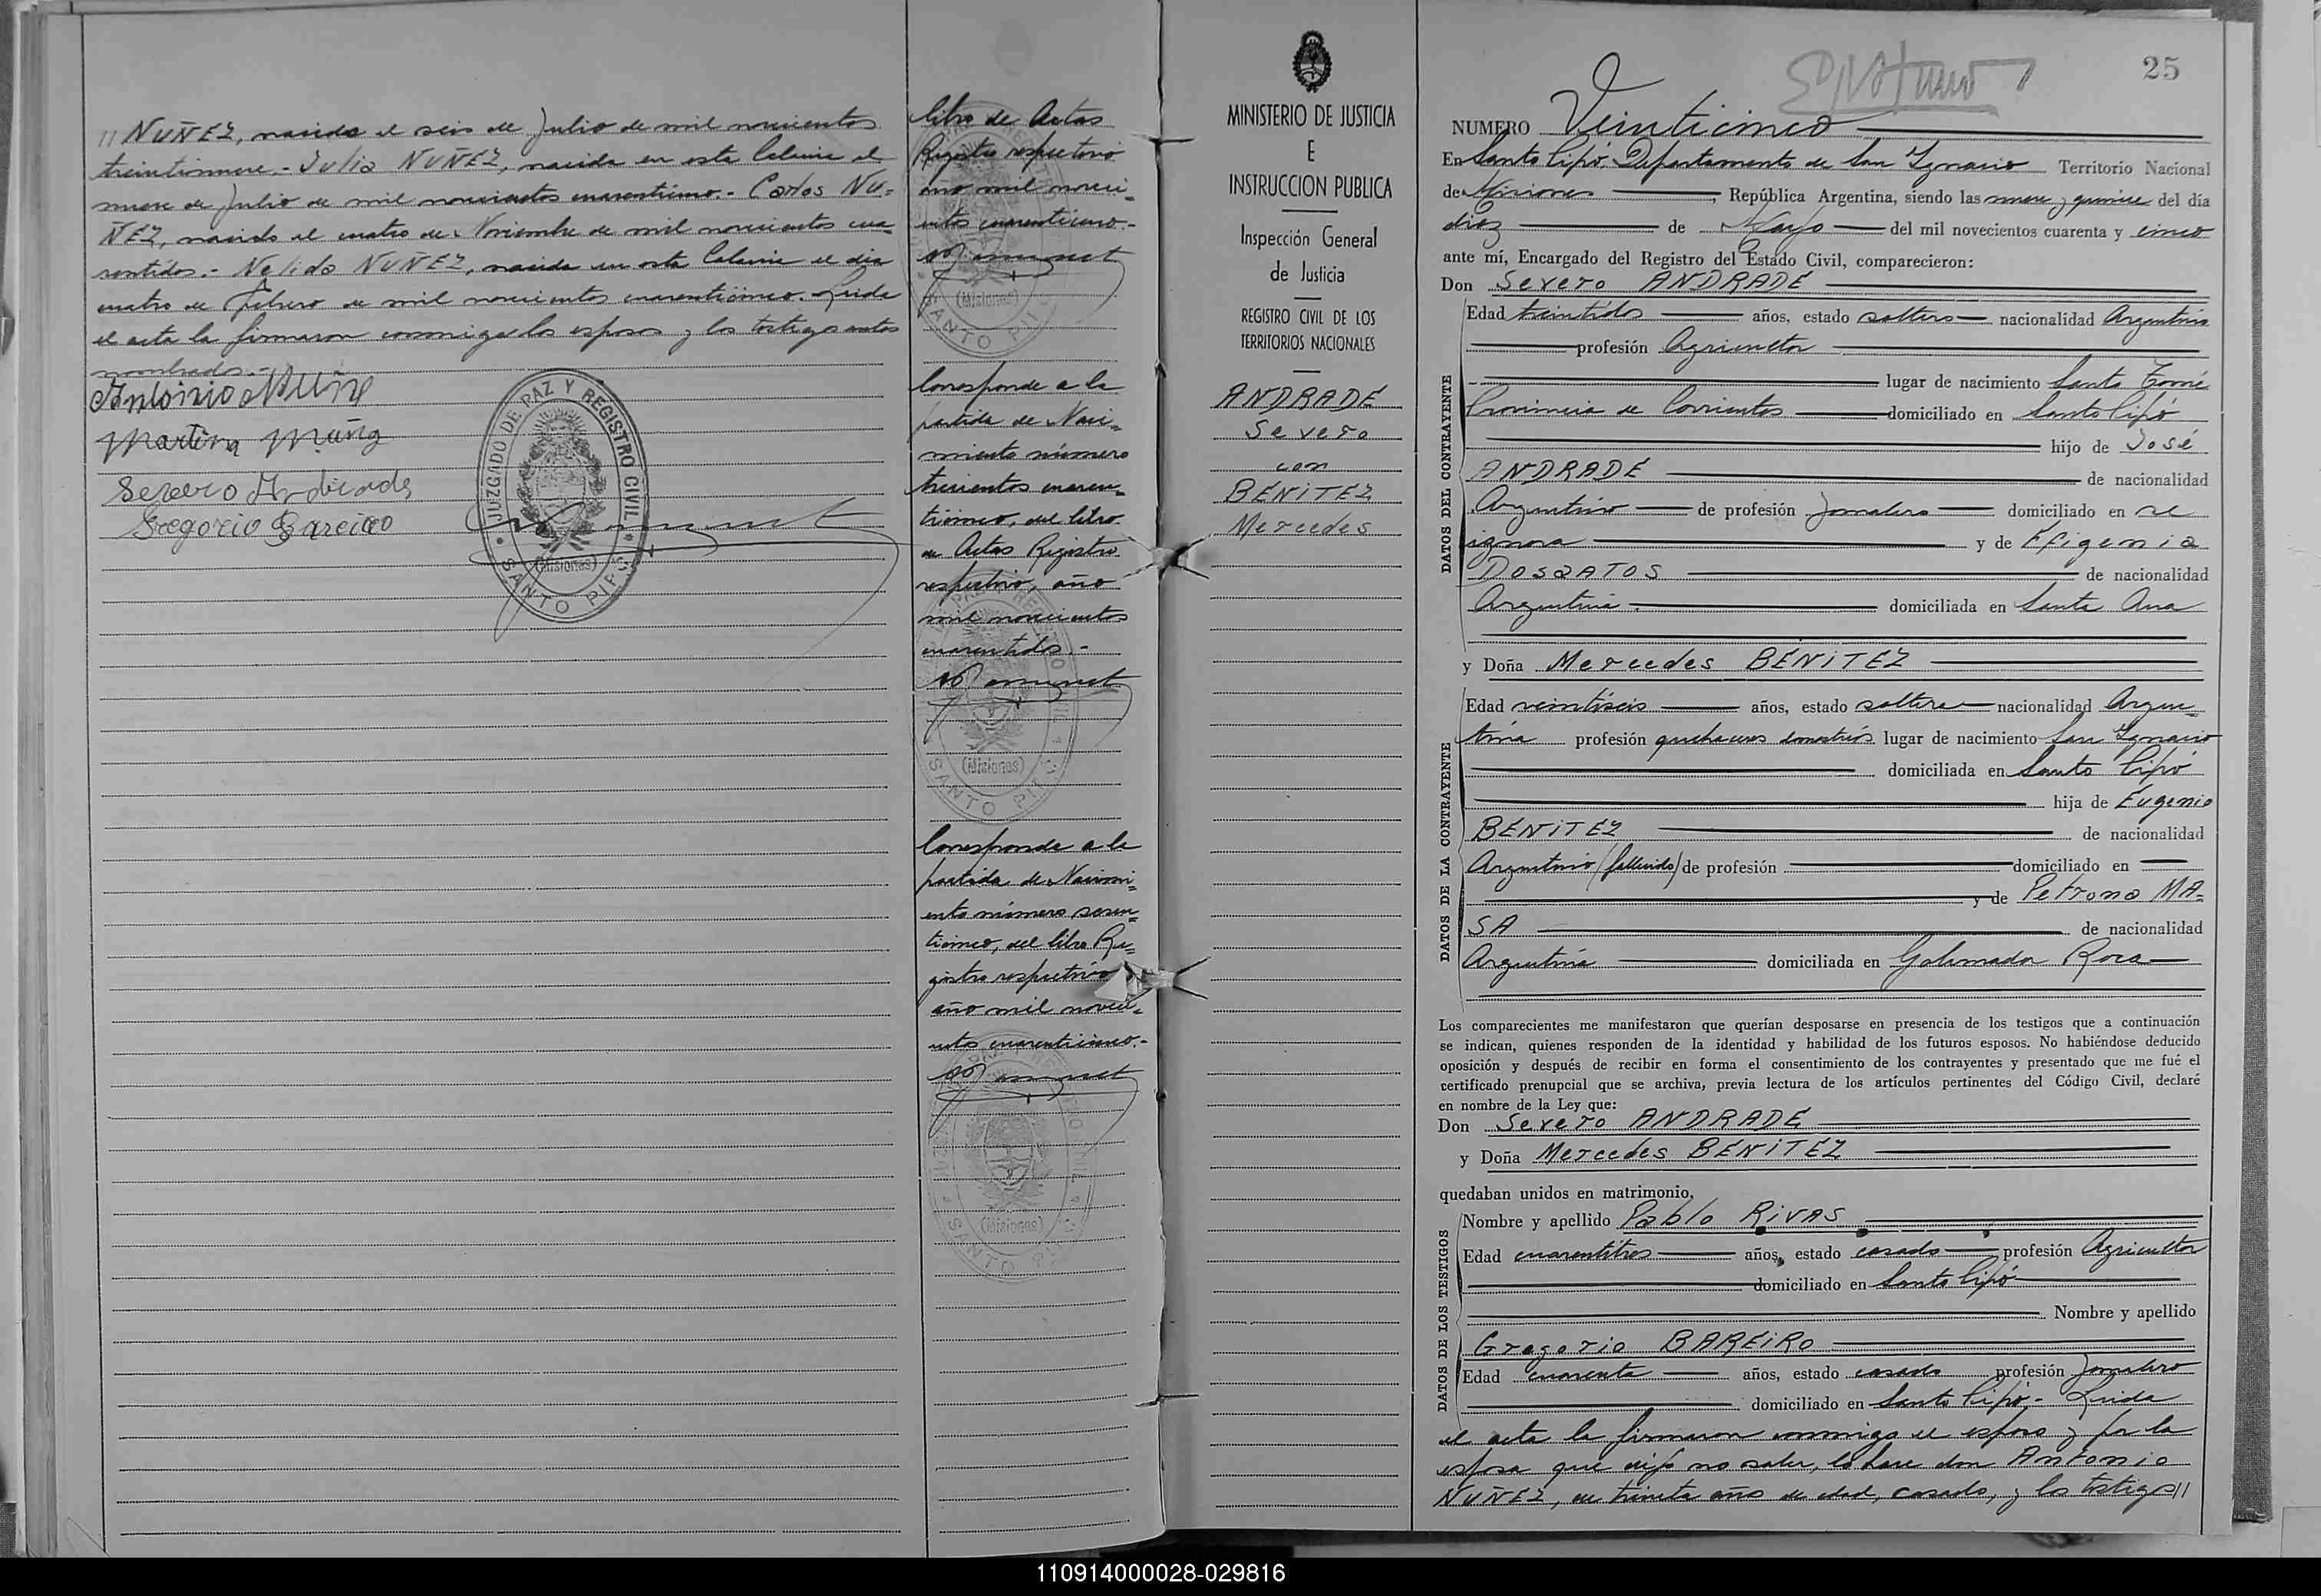 // NUÑEZ, nacida el seis de Julio de mil novecientos
treintinueve.- Julia NUÑEZ, nacida en esta Colonia el
nueve de Julio de mil novecientos cuarentiuno.- Carlos NU=
ÑEZ, nacido el cuatro de Noviembre de mil novecientos cua=
rentidos.- Nelida NUÑEZ, nacida en esta Colonia el dia
cuatro de Febrero de mil novecientos cuarenticinco. Leida
el acta la firmaron conmigo los esposos y los testigos antes
nombrados.-
Antonio Nuñe
Martina Muñoz
Severo Andrade
Gregorio Bareiro
JUZGADO DE PAZ Y REGISTRO CIVIL
(Misiones)
SANTO PIPO
libro de Actas
Registro respectivo
año mil noveci=
entos cuarentiuno.-
(Misiones)
SANTO PI
Corresponde a la
partida de Naci=
miento número
trescientos cuaren=
ticinco, del libro
de Actas Registro
respectivo, año
mil novecientos
cuarentidos.-
(Misiones)
SANTO PI
Corresponde a la
partida de Nacimi=
ento número
ticinco, del libro Re=
gistro respectivo
año mil noveci=
entos cuarenticinco.-
(Misiones)
SANTO PI
MINISTERIO DE JUSTICIA
E
INSTRUCCION PUBLICA
Inspección General
de Justicia
REGISTRO CIVIL DE LOS
TERRITORIOS NACIONALES
ANDRADE
Severo
con
BENITEZ
Mercedes
25
NUMERO Veinticinco
En Santo Pipó. Departamento de San Ignacio Territorio Nacional
de Misiones, República Argentina, siendo las nueve y quince del día
diez de Mayo del mil novecientos cuarenta y cinco
ante mí, Encargado del Registro del Estado Civil, comparecieron:
Don Severo ANDRADE
DATOS DEL CONTRAYENTE
Edad treintidos años, estado soltero nacionalidad Argentina
profesión Agricultor
lugar de nacimiento Santo Tomé
Provincia de Corrientes domiciliado en Santo Pipó
hijo de José
ANDRADE de nacionalidad
Argentino de profesión Jornalero domiciliado en se
ignora y de Efigenia
DOSSATOS de nacionalidad
Argentina domiciliada en Santa Ana
y Doña Mercedes BENITEZ
DATOS DE LA CONTRAYENTE
Edad veintiseis años, estado soltera nacionalidad Argen=
tina profesión quehaceres domésticos lugar de nacimiento San Ignacio
domiciliada en Santo Pipó
hija de Eugenio
BENITEZ de nacionalidad
Argentino (fallecido) de profesión domiciliado en
y de Petrona MA=
SA de nacionalidad
Argentina domiciliada en Gobernador Roca
Los comparecientes me manifestaron que querían desposarse en presencia de los testigos que a continuación
se indican, quienes responden de la identidad y habilidad de los futuros esposos. No habiéndose deducido
oposición y después de recibir en forma el consentimiento de los contrayentes y presentado que me fué el
certificado prenupcial que se archiva, previa lectura de los artículos pertinentes del Código Civil, declaré
en nombre de la Ley que:
Don Severo ANDRADE
y Doña Mercedes BENITEZ
quedaban unidos en matrimonio,
DATOS DE LOS TESTIGOS
Nombre y apellido Pablo RIVAS
Edad cuarentitres años, estado casado profesión Agricultor
domiciliado en Santo Pipó
Nombre y apellido
Gregorio BAREIRO
Edad cuarenta años, estado casado profesión Jornalero
domiciliado en Santo Pipó.- Leida
el acta la firmaron conmigo el esposo y por la
esposa que dijo no saber, lo hace don Antonio
NUÑEZ, de treinta años de edad, casado, y los testigos //
110914000028-029816